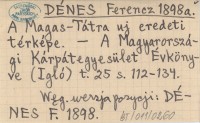 DÉNES Ferenc 1898a.
A Magas-Tátra uj eredeti
térképe. – A Magyarorszá-
gi Kárpátegyesület Évköny-
ve (Igló) t. 25 s. 112-134.
Węg. wersja pozycji: DÉ-
NES F. 1898.